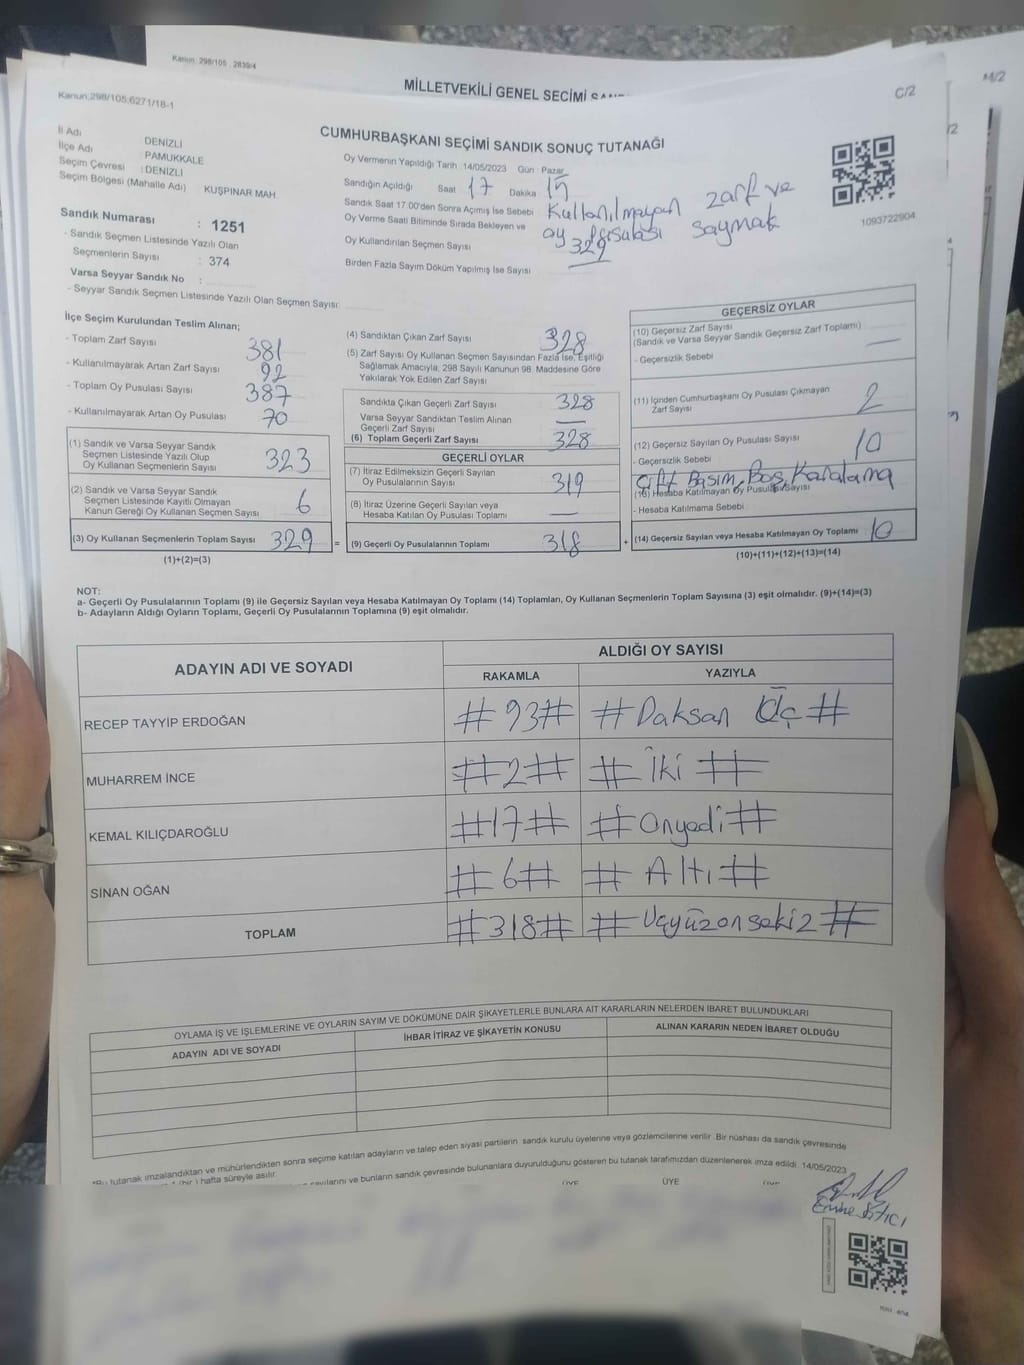 Kanun: 298/105 , 2839/4
MİLLETVEKİLİ GENEL SEÇİMİ
M/2
Kanun:298/105,6271/18-1
C/2
CUMHURBAŞKANI SEÇİMİ SANDIK SONUÇ TUTANAĞI
İl Adı DENİZLİ
İlçe Adı PAMUKKALE
Seçim Çevresi : DENİZLİ
Seçim Bölgesi (Mahalle Adı) KUŞPINAR MAH
Sandık Numarası : 1251
- Sandık Seçmen Listesinde Yazılı Olan
Seçmenlerin Sayısı : 374
Varsa Seyyar Sandık No :
- Seyyar Sandık Seçmen Listesinde Yazılı Olan Seçmen Sayısı:
Oy Vermenin Yapıldığı Tarih :14/05/2023 Gün : Pazar
Sandığın Açıldığı Saat 17 Dakika 15
Sandık Saat 17.00'den Sonra Açımış İse Sebebi Kullanılmayan zarf ve
Oy Verme Saati Bitiminde Sırada Bekleyen ve oy pusulası saymak
Oy Kullandırılan Seçmen Sayısı 329
Birden Fazla Sayım Döküm Yapılmış İse Sayısı
1093722904
İlçe Seçim Kurulundan Teslim Alınan;
- Toplam Zarf Sayısı 381
- Kullanılmayarak Artan Zarf Sayısı 92
- Toplam Oy Pusulası Sayısı 387
- Kullanılmayarak Artan Oy Pusulası 70
(1) Sandık ve Varsa Seyyar Sandık
Seçmen Listesinde Yazılı Olup
Oy Kullanan Seçmenlerin Sayısı 323
(2) Sandık ve Varsa Seyyar Sandık
Seçmen Listesinde Kayıtlı Olmayan
Kanun Gereği Oy Kullanan Seçmen Sayısı 6
(3) Oy Kullanan Seçmenlerin Toplam Sayısı 329
(1)+(2)=(3)
(4) Sandıktan Çıkan Zarf Sayısı 328
(5) Zarf Sayısı Oy Kullanan Seçmen Sayısından Fazla İse, Eşitliği
Sağlamak Amacıyla, 298 Sayılı Kanunun 98. Maddesine Göre
Yakılarak Yok Edilen Zarf Sayısı
Sandıkta Çıkan Geçerli Zarf Sayısı 328
Varsa Seyyar Sandıktan Teslim Alınan
Geçerli Zarf Sayısı —
(6) Toplam Geçerli Zarf Sayısı 328
GEÇERLİ OYLAR
(7) İtiraz Edilmeksizin Geçerli Sayılan
Oy Pusulalarının Sayısı 319
(8) İtiraz Üzerine Geçerli Sayılan veya
Hesaba Katılan Oy Pusulası Toplamı —
= (9) Geçerli Oy Pusulalarının Toplamı 318
GEÇERSİZ OYLAR
(10) Geçersiz Zarf Sayısı
(Sandık ve Varsa Seyyar Sandık Geçersiz Zarf Toplamı) —
- Geçersizlik Sebebi
(11) İçinden Cumhurbaşkanı Oy Pusulası Çıkmayan
Zarf Sayısı 2
(12) Geçersiz Sayılan Oy Pusulası Sayısı 10
- Geçersizlik Sebebi
Çift Basım, Boş, Karalama
Hesaba Katılmayan Oy Pusulası Sayısı
- Hesaba Katılmama Sebebi
+ (14) Geçersiz Sayılan veya Hesaba Katılmayan Oy Toplamı 10
(10)+(11)+(12)+(13)=(14)
NOT:
a- Geçerli Oy Pusulalarının Toplamı (9) ile Geçersiz Sayılan veya Hesaba Katılmayan Oy Toplamı (14) Toplamları, Oy Kullanan Seçmenlerin Toplam Sayısına (3) eşit olmalıdır. (9)+(14)=(3)
b- Adayların Aldığı Oyların Toplamı, Geçerli Oy Pusulalarının Toplamına (9) eşit olmalıdır.
ADAYIN ADI VE SOYADI ALDIĞI OY SAYISI
RAKAMLA YAZIYLA
RECEP TAYYİP ERDOĞAN #93# #Daksan Üç#
MUHARREM İNCE #2# #İki#
KEMAL KILIÇDAROĞLU #17# #Onyedi#
SİNAN OĞAN #6# #Altı#
TOPLAM #318# #Üçyüzonsekiz#
OYLAMA İŞ VE İŞLEMLERİNE VE OYLARIN SAYIM VE DÖKÜMÜNE DAİR ŞİKAYETLERLE BUNLARA AİT KARARLARIN NELERDEN İBARET BULUNDUKLARI
ADAYIN ADI VE SOYADI İHBAR İTİRAZ VE ŞİKAYETİN KONUSU ALINAN KARARIN NEDEN İBARET OLDUĞU
*Bu tutanak imzalandıktan ve mühürlendikten sonra seçime katılan adayların ve talep eden siyasi partilerin sandık kurulu üyelerine veya gözlemcilerine verilir. Bir nüshası da sandık çevresinde
1 (bir ) hafta süreyle asılır.
sayılarını ve bunların sandık çevresinde bulunanlara duyurulduğunu gösteren bu tutanak tarafımızdan düzenlenerek imza edildi. 14/05/2023
ÜYE ÜYE ÜYE